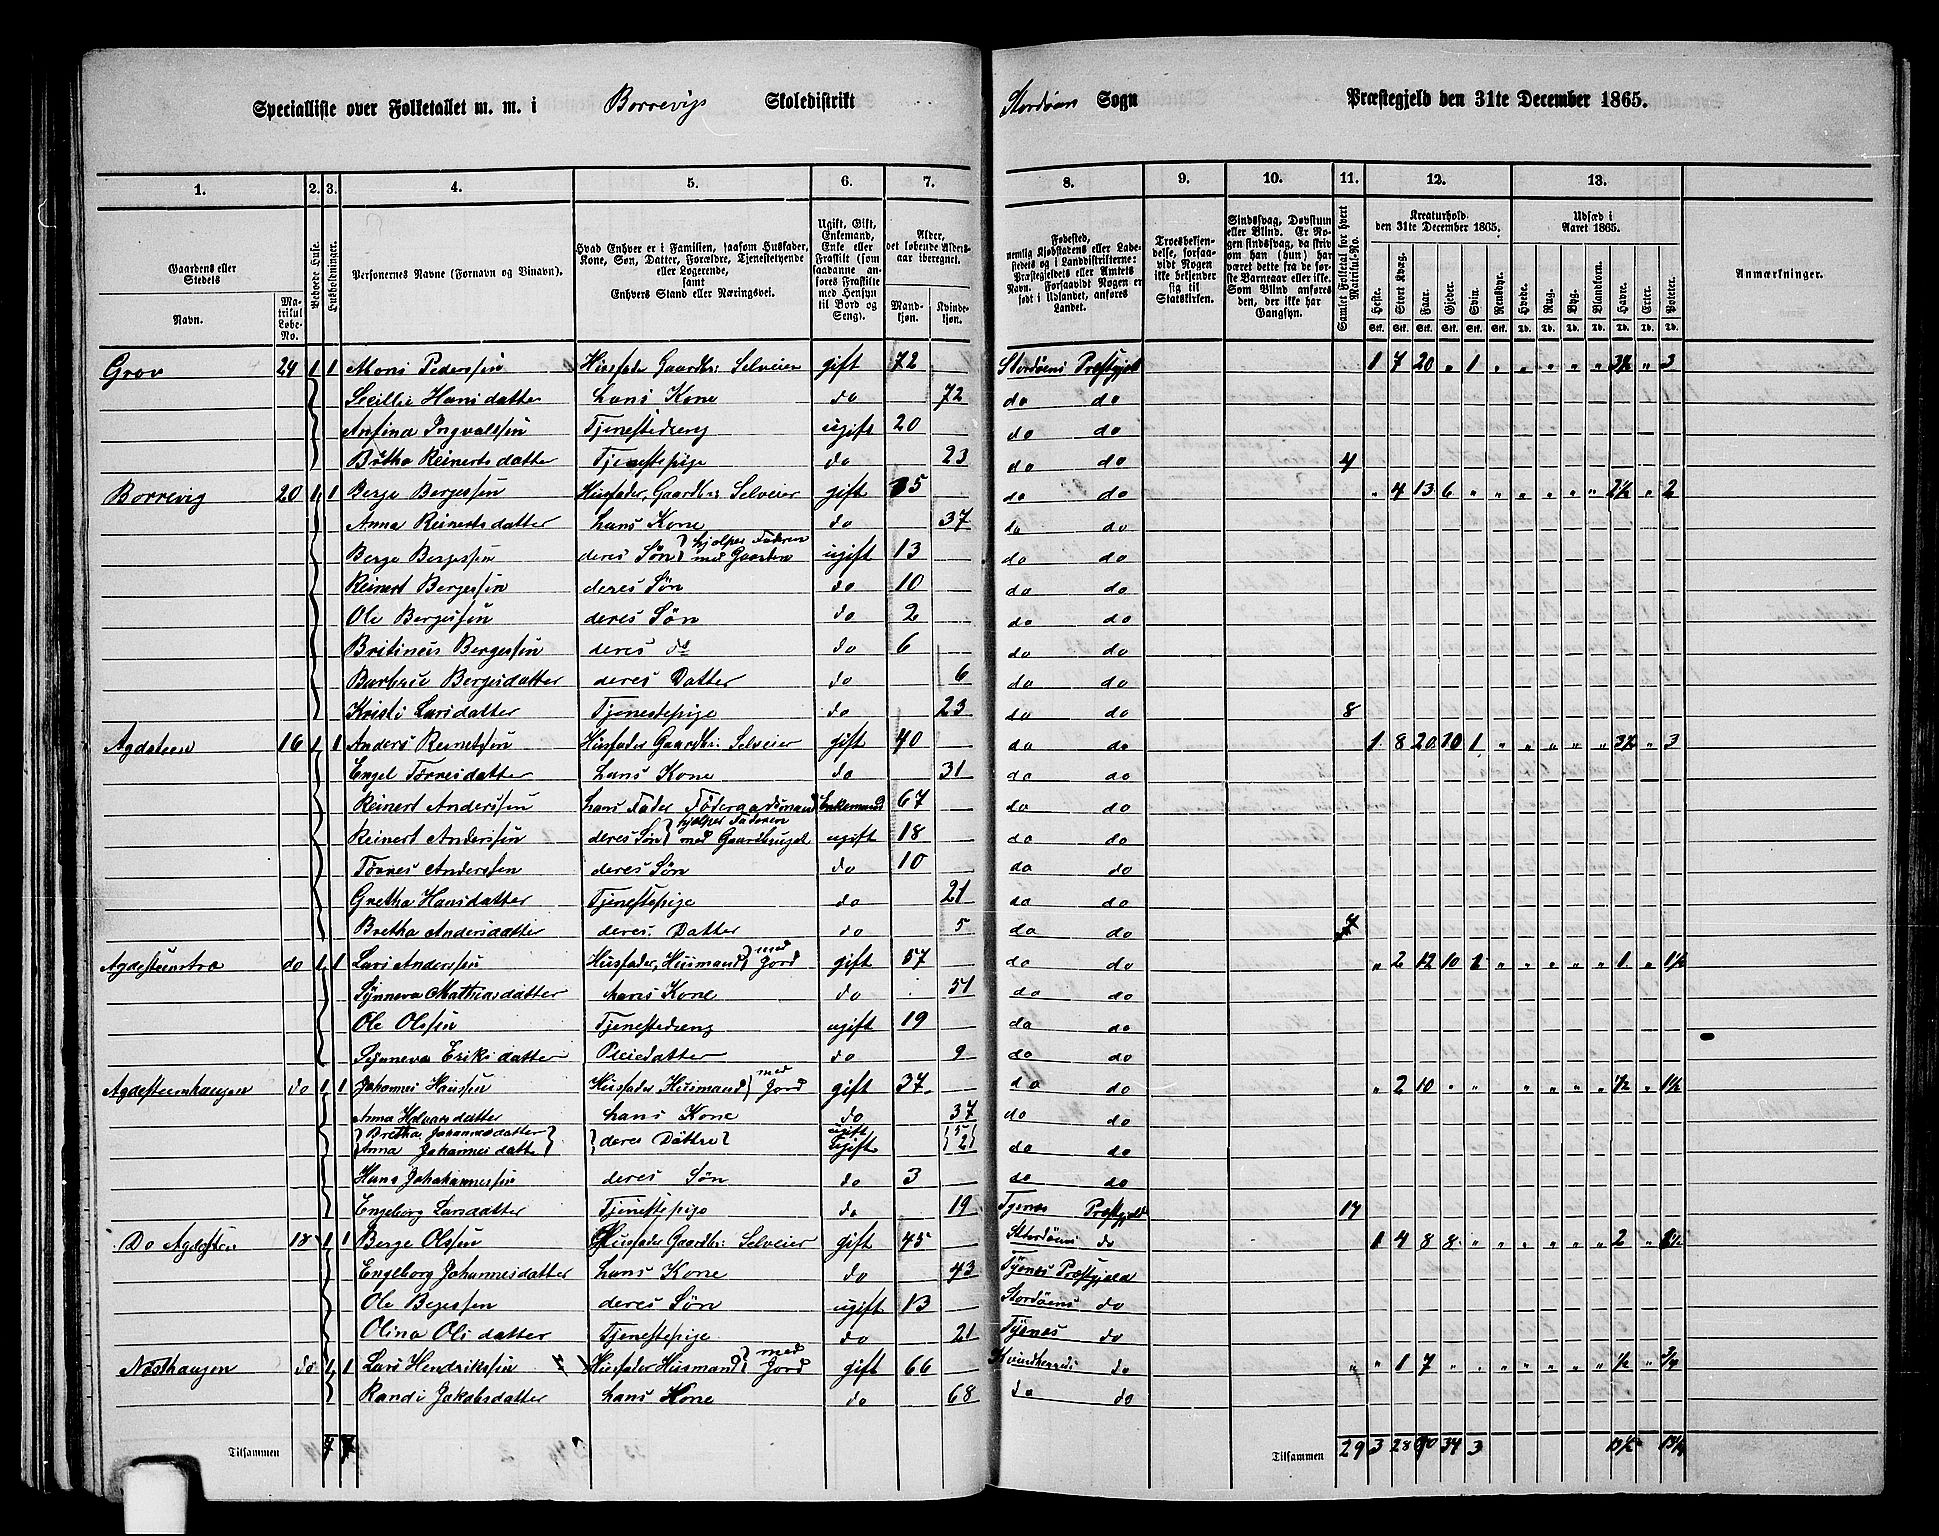 Specialliste over Folketallet m. m. i Borrevigs Skoledistrikt Stordøens Sogn Præstegjeld den 31te December 1865.
1. 2. 3. 4. 5. 6. 7. 8. 9. 10. 11. 12. 13.
Gaardens eller Stedets Navn.
Matrikul Løbe-No.
Beboede Huse.
Husholdninger.
Personernes Navne (Fornavn og Tilnavn).
Hvad Enhver er i Familien, saasom Husfader, Kone, Søn, Datter, Forældre, Tjenestetyende eller Logerende, samt Enhvers Stand eller Næringsvei.
Ugift, Gift, Enkemand, Enke eller Fraskilt (som saadanne anføres Fraskilte med Hensyn til Bord og Seng).
Alder, det løbende Alders-aar iberegnet.
Mandkjøn. Kvindekjøn.
Fødested, nemlig Kjøbstadens eller Ladestedets og i Landdistrikterne: Præstegjeldets eller Amtets Navn. Forsaavidt Nogen er født i Udlandet, anføres Landet.
Troesbekjendelse, forsaavidt Nogen ikke bekjender sig til Statskirken.
Sindssvag, Døvstum eller Blind. Er Nogen sindssvag, da skrives om han (hun) har været dette fra de første Barneaar eller ikke. Som Blind anføres den, der ikke har Gangsyn.
Samlet Folketal for hvert Matrikul-No.
Kreaturhold den 31te December 1865.
Heste. Stort Kvæg. Faar. Gjeder. Svin. Rensdyr.
Udsæd i Aaret 1865.
Hvede. Rug. Byg. Blandkorn. Havre. Erter. Poteter.
Anmærkninger.
Stk. Stk. Stk. Stk. Stk. Stk. Td. Td. Td. Td. Td. Td. Td.
Grov 24 1 1 Mons Pederssen Husfader Gaardbr: Selveier gift 72 Stordøens Præstgjeld 1 7 20 „ 1 „ „ „ „ „ 3½ „ 3
Secillie Hansdatter hans Kone do 72 do do
Anfina Ingvalssen Tjenestedreng ugift 20 do do
Britha Reinertsdatter Tjenestepige do 23 do do 4
Borrevig 20 1 1 Berge Bergessen Husfader, Gaardbr: Selveier gift 35 do do „ 4 13 6 „ „ „ „ „ „ 2½ „ 2
Anna Reinertsdatter hans Kone do 37 do do
Berge Bergessen deres Søn hjælper Faderen med Gaarden ugift 13 do do
Reinert Bergessen deres Søn do 10 do do
Ole Bergessen deres Søn do 2 do do
Britineus Bergessen deres do do 6 do do
Barbrue Bergesdatter deres Datter do 6 do do
Kristi Larsdatter Tjenestepige do 23 do do 8
Agdesteen 16 1 1 Anders Reinetsen Husfader Gaardbr: Selveier gift 40 do do 1 8 20 10 1 „ „ „ „ „ 3½ „ 3
Engel Tørresdatter hans Kone do 31 do do
Reinert Anderssen hans Fader Føderaadsmand Enkemand 67 do do
Reinert Anderssen deres Søn hjælper Faderen med Gaardbruget ugift 18 do do
Tørres Anderssen deres Søn do 10 do do
Gretha Hansdatter Tjenestepige do 21 do do
Bretha Andersdatter deres Datter do 5 do do 7
Agdesteenstra do 1 1 Lars Anderssen Husfader, Husmand med Jord gift 57 do do „ 2 12 10 1 „ „ „ „ „ 1 „ 1½
Synneva Mathiasdatter hans Kone do 51 do do
Ole Olssen Tjenestedreng ugift 19 do do
Synneva Eriksdatter Pleiedatter do 9 do do
Agdesteenhaugen do 1 1 Johannes Hanssen Husfader Husmand med Jord gift 37 do do „ 2 10 „ „ „ „ „ „ ½ „ 1½
Anna Halvarsdatter hans Kone do 37 do do
Bretha Johannesdatter
Anna Johannesdatt deres Døttre ugift Ugift 5 2 do do
Hans Johahannessen deres Søn do 3 do do
Engeborg Larsdatter Tjenestepige do 19 Tysnes Præstgjeld 17
Do Agdesten 18 1 1 Berge Olssen Husfader Gaardbr: Selveier gift 45 Stordøens do 1 4 8 8 „ „ „ „ „ „ 2 „ 1½
Engeborg Johannesdatter hans Kone do 43 Tysnes Præstgjeld
Ole Begessen deres Søn ugift 13 Stordøens do
Olina Olsdatter Tjenestepige do 21 Tysnes do
Nosthaugen do 1 1 Lars Hendrikssen Husfader Husmand med Jord gift 66 Kvindherreds do „ „ 1 7 „ „ „ „ „ „ ½ „ 3/4
Randi Jakobsdatter hans Kone do 68 do do
Tilsammen 7 7 Tilsammen 29 3 28 90 34 3 13½ 13¼